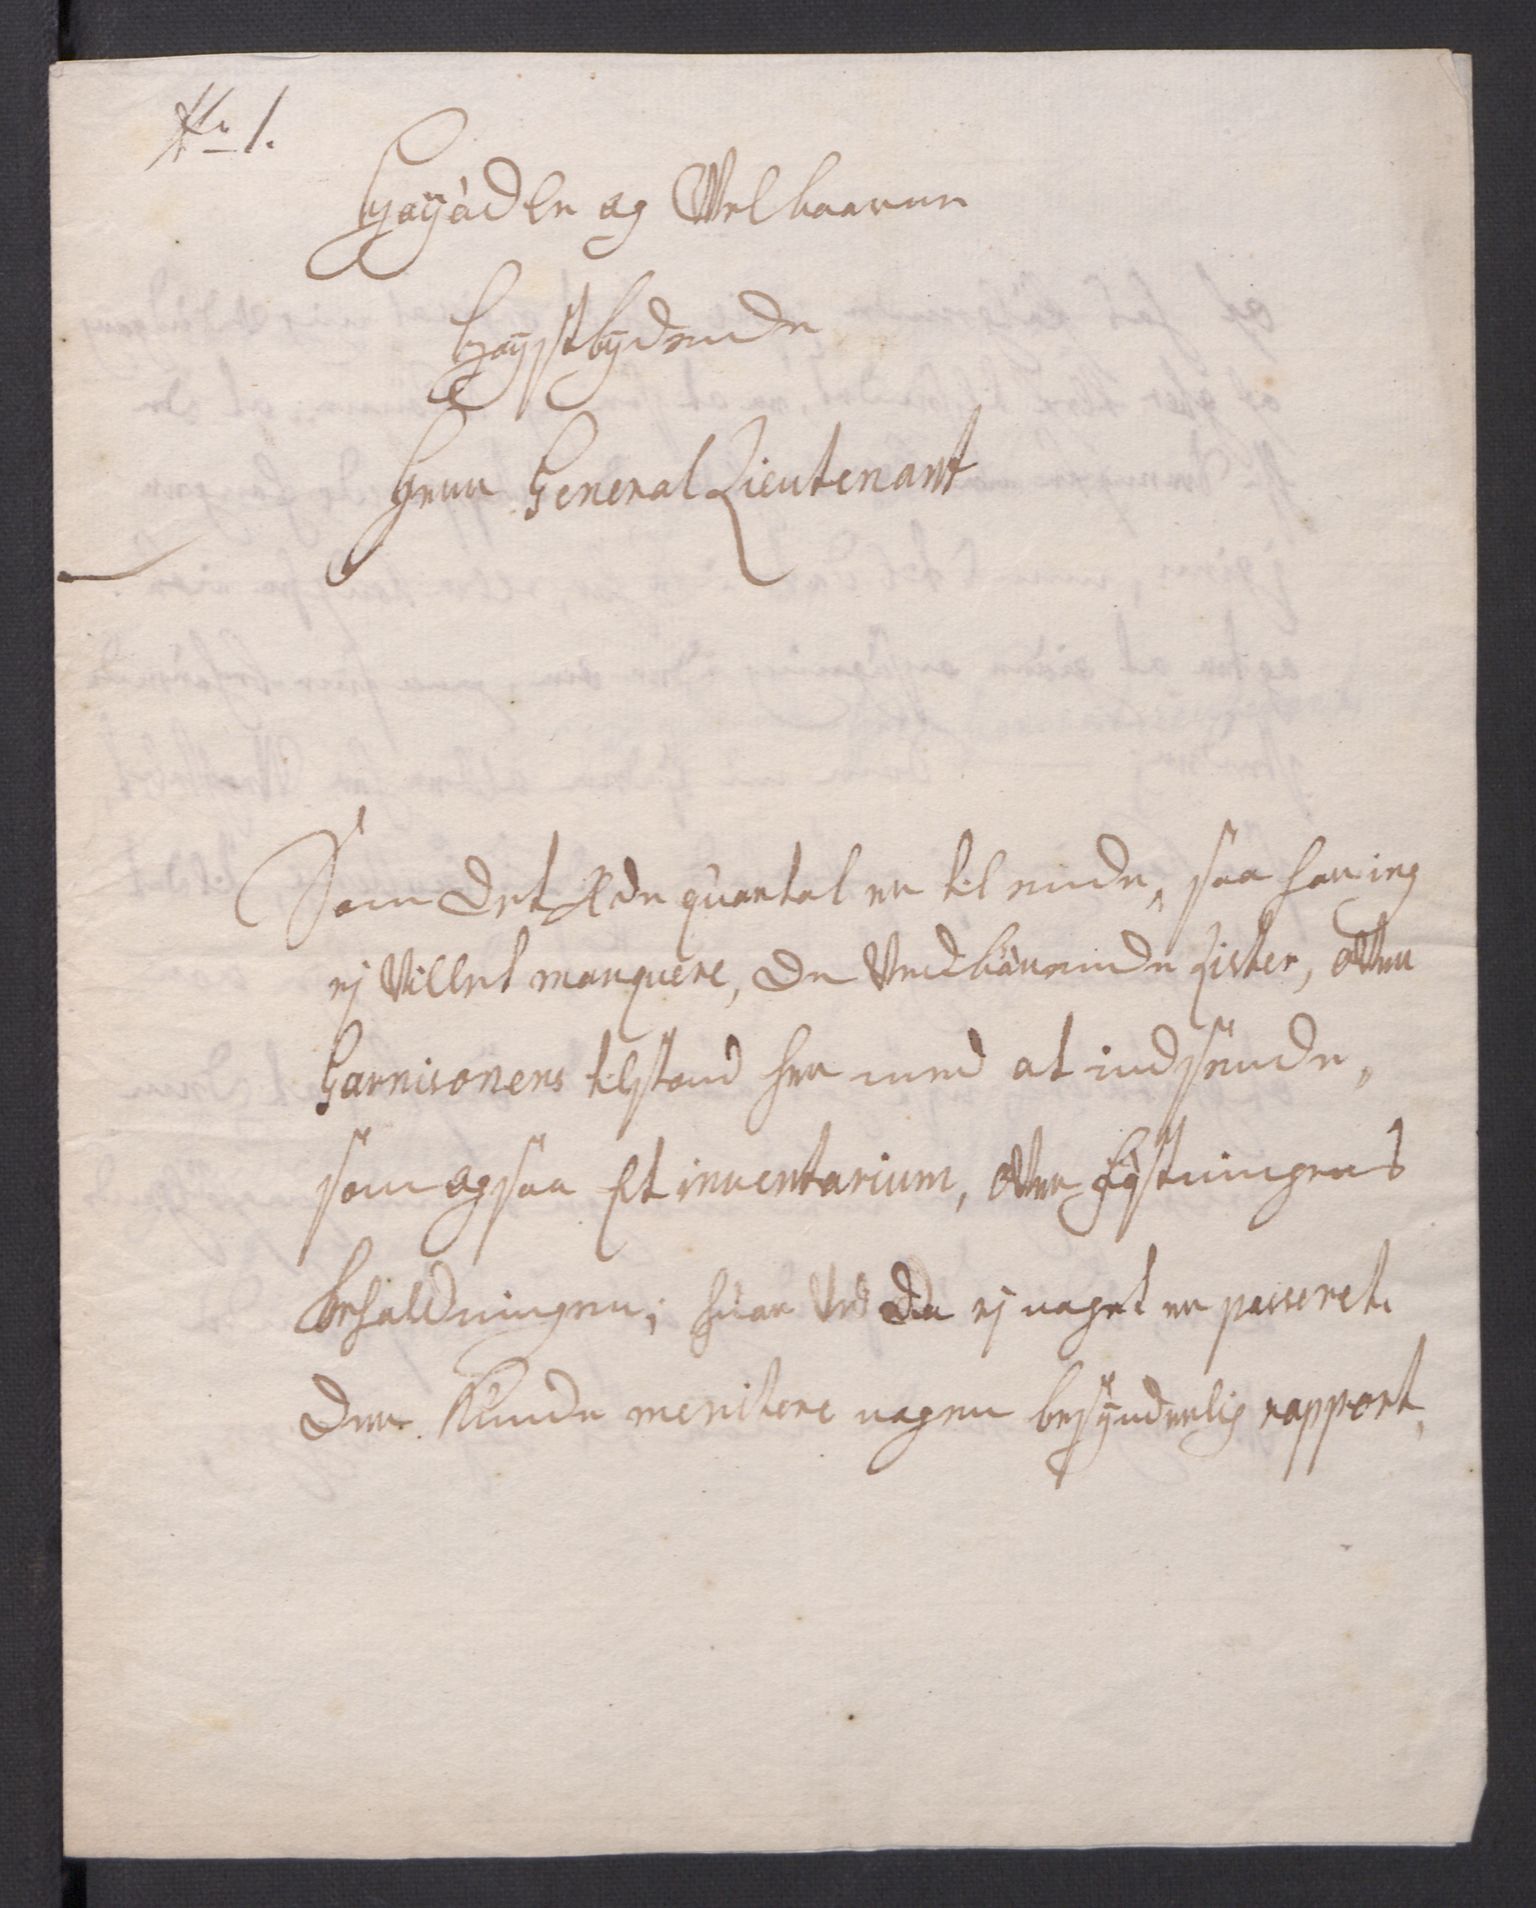 No 1.
Høyædle og Welbaarne
Høystbydende
Herr General Lieutenant
Som det 4de quartal er til ende, saa har ieg
ej Villet manquere, de Vedbörende Lister, over
Garnisonens tilstand her med at indsende,
som ogsaa Et inventarium, over Fæstningens
beholdninger; hvor Ved da ej noget er passeret.
der Kunde meritere nogen besÿnderlig rapport,